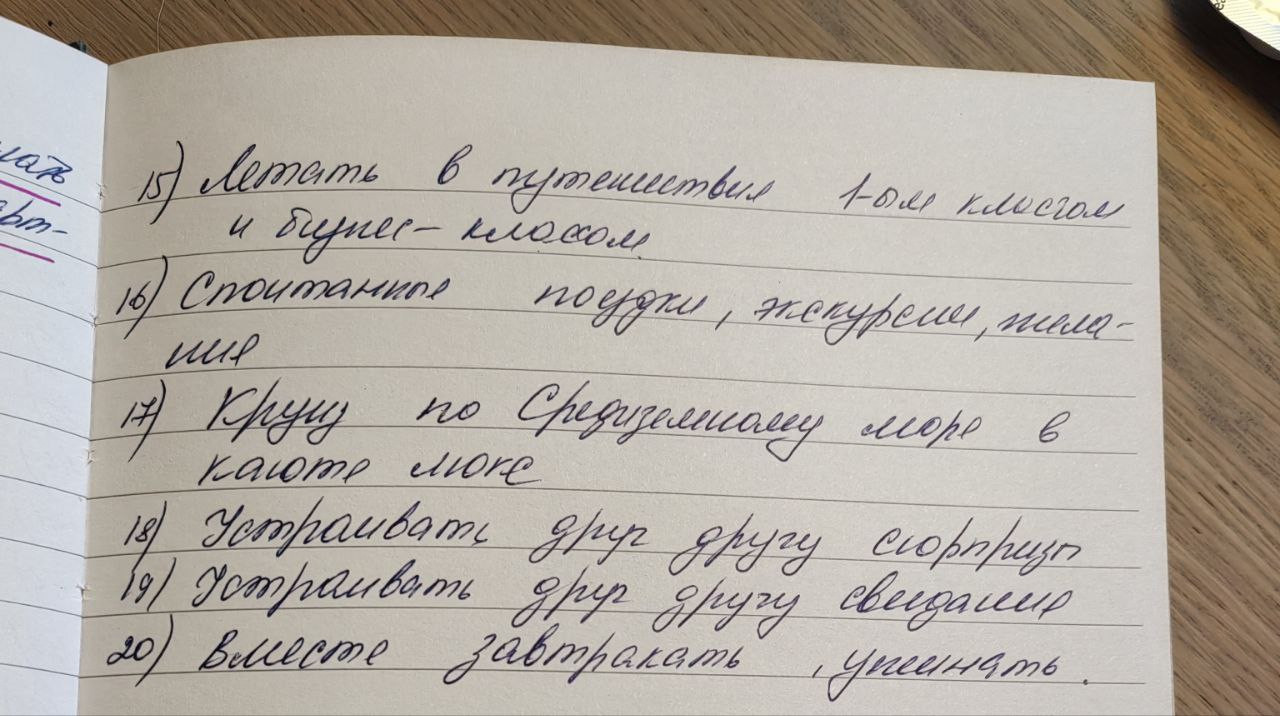 15) Летать в путешествия 1-ым классом
и бизнес- классом
16) Спонтанные поездки, экскурсии, жела-
ния
17) Круиз по Средиземному море в
каюте люкс
18) Устраивать друг другу сюрпризы
19) Устраивать друг другу свидание
20) Вместе завтракать, ужинать.